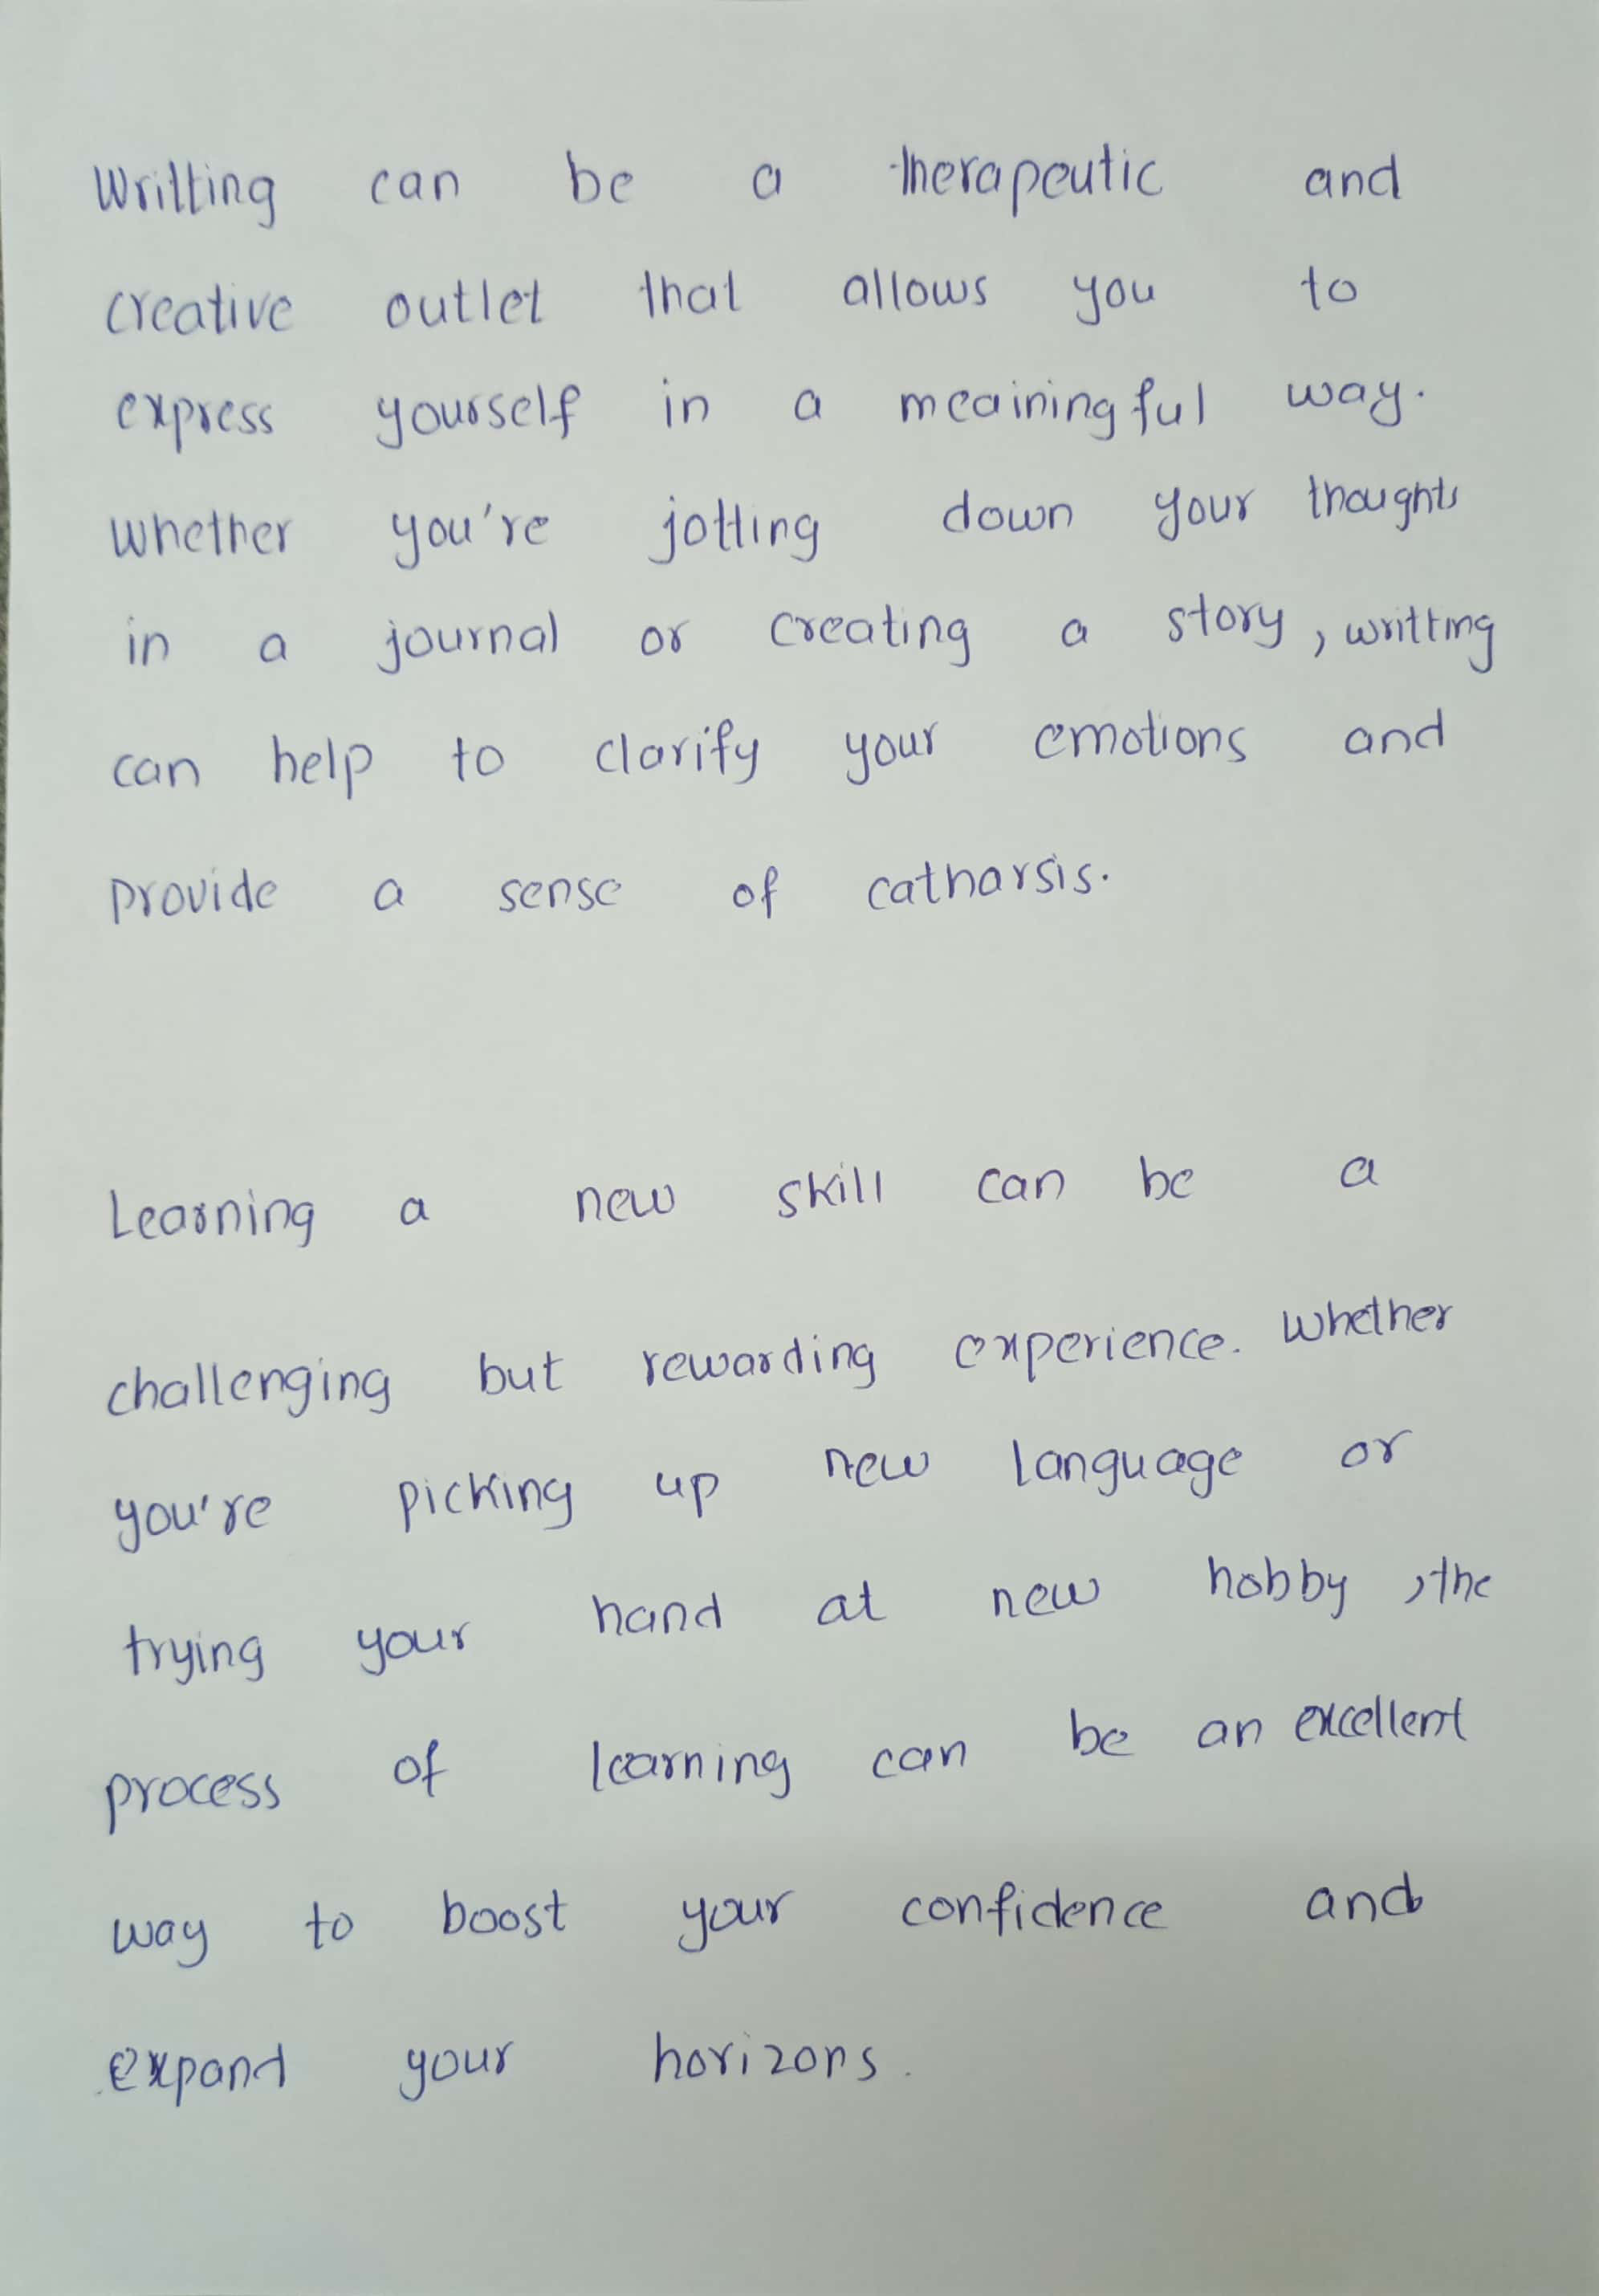 Writting can be a therapeutic and
creative outlet that allows you to
express yourself in a meainingful way.
whether you're jotting down your thoughts
in a journal or creating a story, writting
can help to clarify your emotions and
provide a sense of catharsis.
Learning a new skill can be a
challenging but rewarding experience. Whether
you're picking up new language or
trying your hand at new hobby, the
process of learning can be an excellent
way to boost your confidence and
expand your horizons.